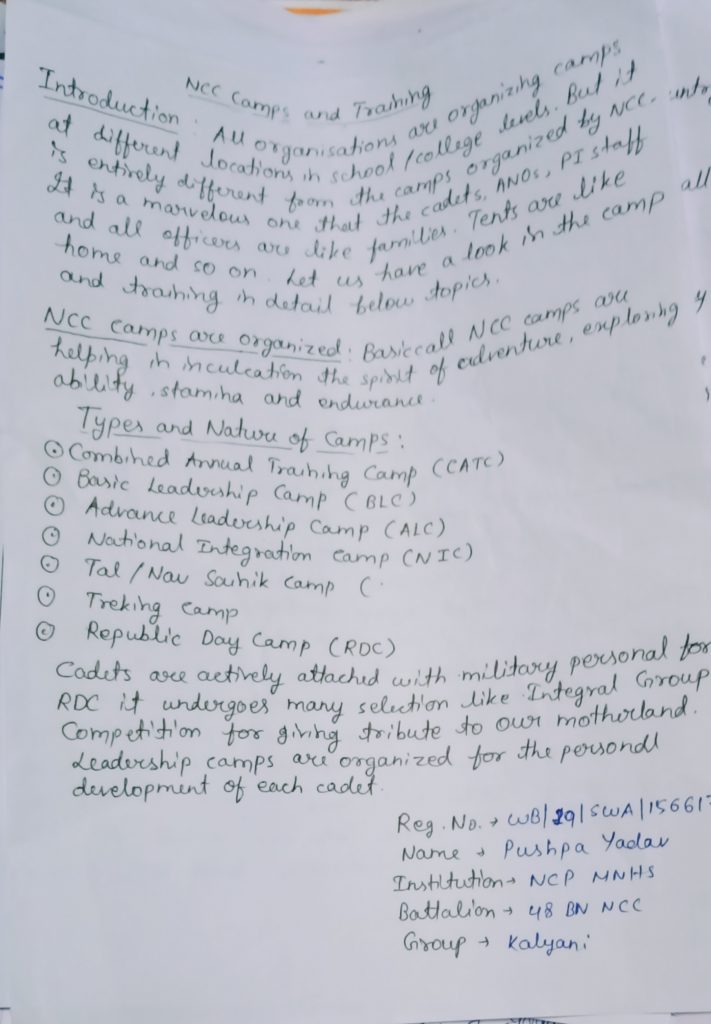 NCC Camps and Training
Introduction : All organisations are organizing camps
at different locations in school / college levels. But it
is entirely different from the camps organized by NCC.
It is a marvelous one that the cadets, ANOs, PI staff
and all officers are like families. Tents are like
home and so on. Let us have a look in the camp all
and training in detail below topics.
NCC camps are organized : Basiccall NCC camps are
helping in inculcation the spirit of adventure, exploring y
ability, stamina and endurance.
Types and Nature of Camps :
Combined Annual Training Camp (CATC)
Basic Leadership Camp (BLC)
Advance Leadership Camp (ALC)
National Integration Camp (NIC)
Tal / Nav Sainik Camp (
Treking Camp
Republic Day Camp (RDC)
Cadets are actively attached with military personal for
RDC it undergoes many selection like Integral Group
Competition for giving tribute to our motherland.
Leadership camps are organized for the personal
development of each cadet.
Reg. No. → WB/19/SWA/15661
Name → Pushpa Yadav
Institution → NCP MNHS
Battalion → 48 BN NCC
Group → Kalyani